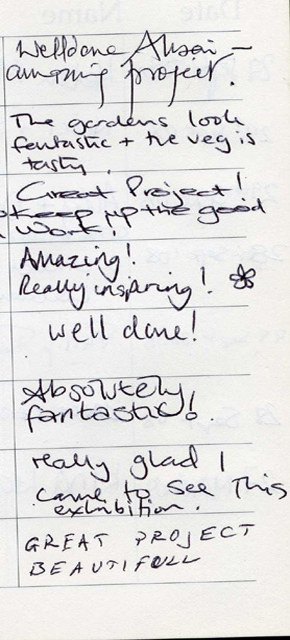 Welldone Alison –
amazing project.
The gardens look
fantastic + the veg is
tasty.
Great Project!
Keep up the good
Work!
Amazing!
Really inspiring!
well done!
Absolutely
fantastic!
really glad I
came to see this
exhibition.
GREAT PROJECT
BEAUTIFULL